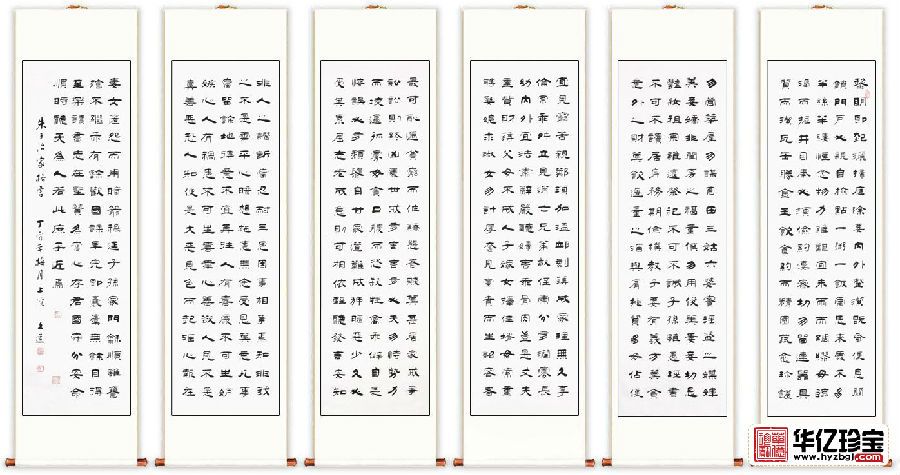 黎明即起灑掃庭除要內外整潔既昏便息關
鎖門戶必親自檢點一粥一飯當思來處不易
半絲半縷恒念物力維艱宜未雨而綢繆毋臨
渴而掘井自奉必須儉約宴客切勿流連器具
質而潔瓦缶勝金玉飲食約而精園蔬愈珍饈
勿營華屋勿謀良田三姑六婆實淫盜之媒婢
美妾嬌非閨房之福童僕勿用俊美妻妾切忌
豔妝祖宗雖遠祭祀不可不誠子孫雖愚經書
不可不讀居身務期質樸教子要有義方莫貪
意外之財莫飲過量之酒與肩挑貿易毋佔便
宜見窮苦親鄰須加溫卹刻薄成家理無久享
倫常乖舛立見消亡兄弟叔姪須分多潤寡長
幼內外宜法肅辭嚴聽婦言乖骨肉豈是丈夫
重資財薄父母不成人子嫁女擇佳婿毋索重
聘娶媳求淑女勿計厚奩見富貴而生諂容者
最可恥遇貧窮而作驕態者賤莫甚居家戒爭
訟訟則終凶處世戒多言言多必失勿恃勢力
而凌逼孤寡毋貪口腹而恣殺生禽乖僻自是
悔誤必多頹惰自甘家道難成狎昵惡少久必
受其累屈志老成急則可相依輕聽發言安知
非人之譖愬當忍耐三思因事相爭焉知非我
之不是須平心暗想施惠無念受恩莫忘凡事
當留餘地得意不宜再往人有喜慶不可生妒
嫉心人有禍患不可生喜幸心善欲人見不是
真善惡恐人知便是大惡見色而起淫心報在
妻女匿怨而用暗箭禍延子孫家門和順雖饔
飧不繼亦有餘歡國課早完即囊橐無餘自得
至樂讀書志在聖賢為官心存君國守分安命
順時聽天為人若此庶乎近焉
朱子治家格言 丁酉年梅月
华亿珍宝
www.hyzbgl.com